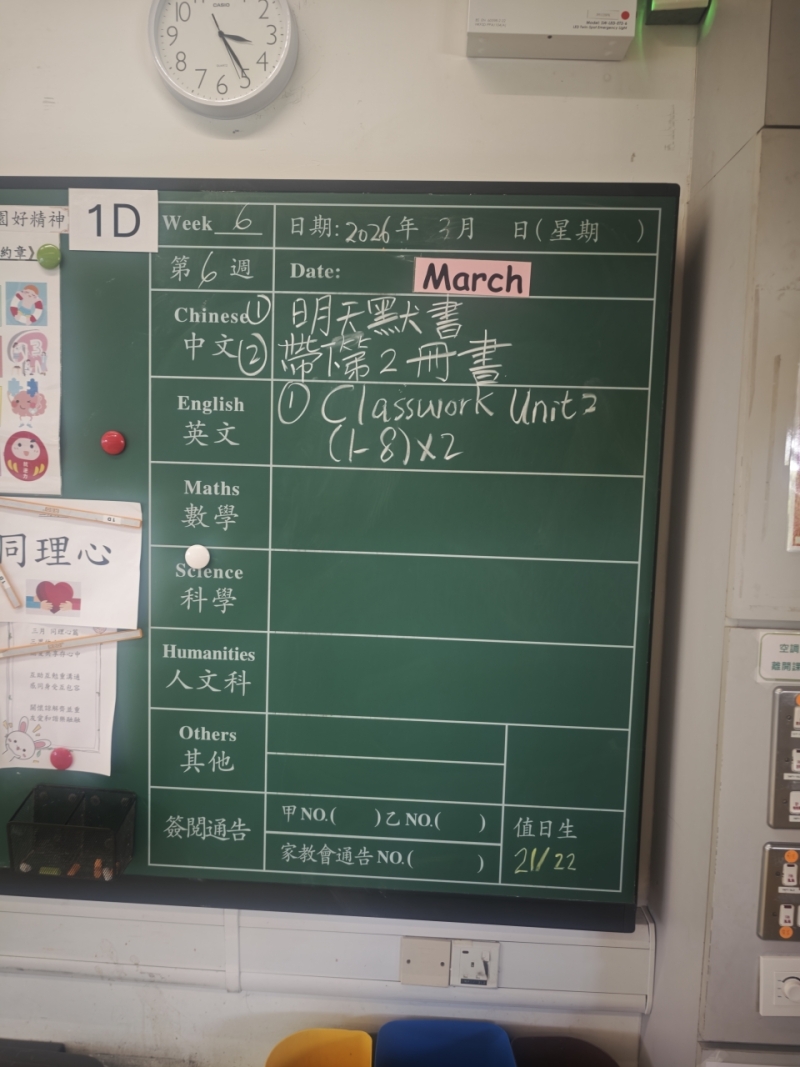 10 2
9 3
8 4
7 6 5
CASIO
園好精神
約章》
1D
Week 6
日期: 2026年 3月 日(星期 )
第6週
Date:
March
Chinese
中文
① 明天默書
② 帶下第2冊書
English
英文
① Classwork Unit 2
(1-8)×2
Maths
數學
Science
科學
Humanities
人文科
Others
其他
簽閱通告
甲NO.( ) 乙NO.( )
家教會通告NO.( )
值日生
21/22
同理心
三月 同理心篇
空調
離開課